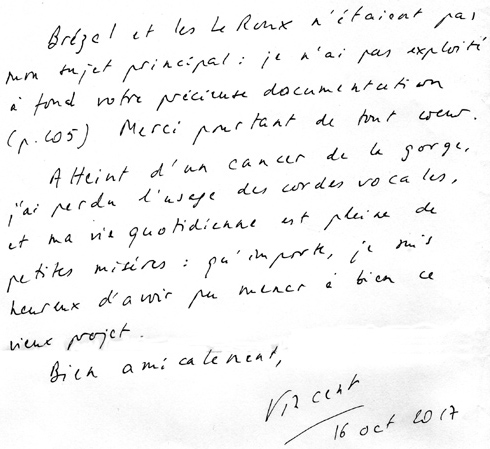 Brézal et les Le Roux n'étaient pas
mon sujet principal : je n'ai pas exploité
à fond votre précieuse documentation
(p. 405) Merci pourtant de tout coeur.
Atteint d'un cancer de la gorge,
j'ai perdu l'usage des cordes vocales,
et ma vie quotidienne est pleine de
petites misères : qu'importe, je suis
heureux d'avoir pu mener à bien ce
vieux projet.
Bien amicalement,
Vincent
16 oct 2017